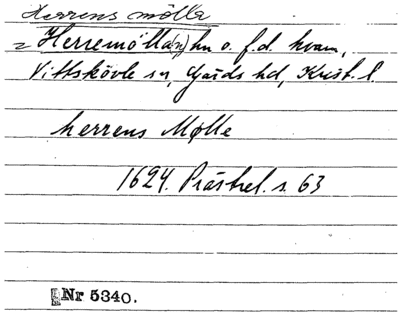 Herrens mölla
= Herremölla(n) hn o. f.d. kvarn,
Vittskövle sn, Gärds hd, Krist. l.
herrens Mølle
1624. Prästrel. s. 63
Nr 5340.